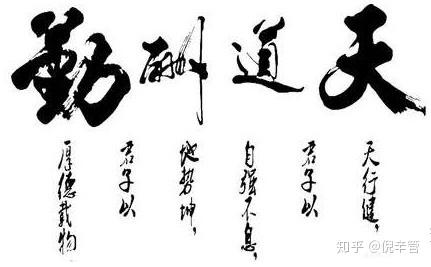 天道酬勤
天行健，
君子以
自强不息，
地势坤，
君子以
厚德载物
知乎 @倪辛管